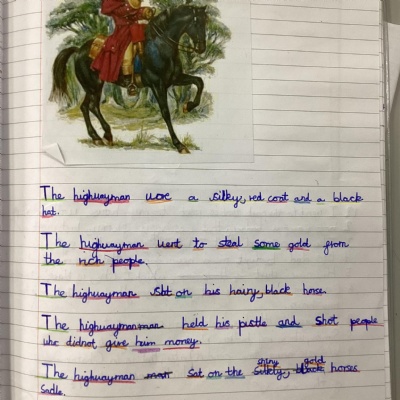 The highwayman wore a silky, red coat and a black
hat.
The highwayman went to steal some gold from
the rich people.
The highwayman sat on his hairy, black horse.
The highwayman held his pistle and shot people
who didnot give heim money.
The highwayman sat on the shiny gold horses
sadle.